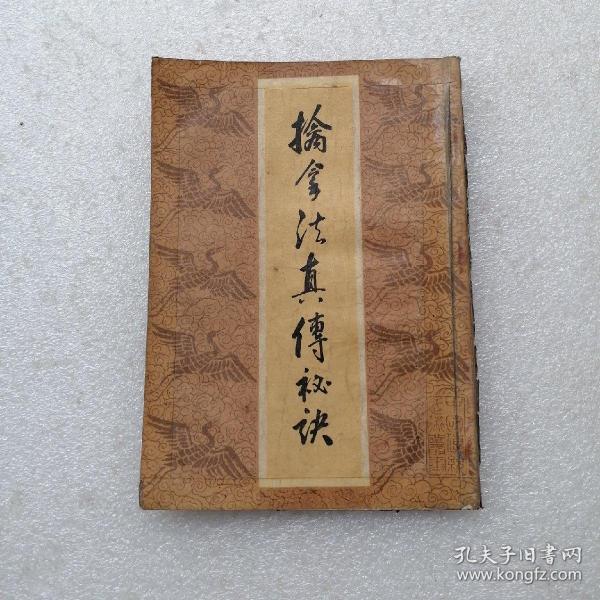 擒拿法真傳祕訣
孔夫子旧书网
www.kongfz.com